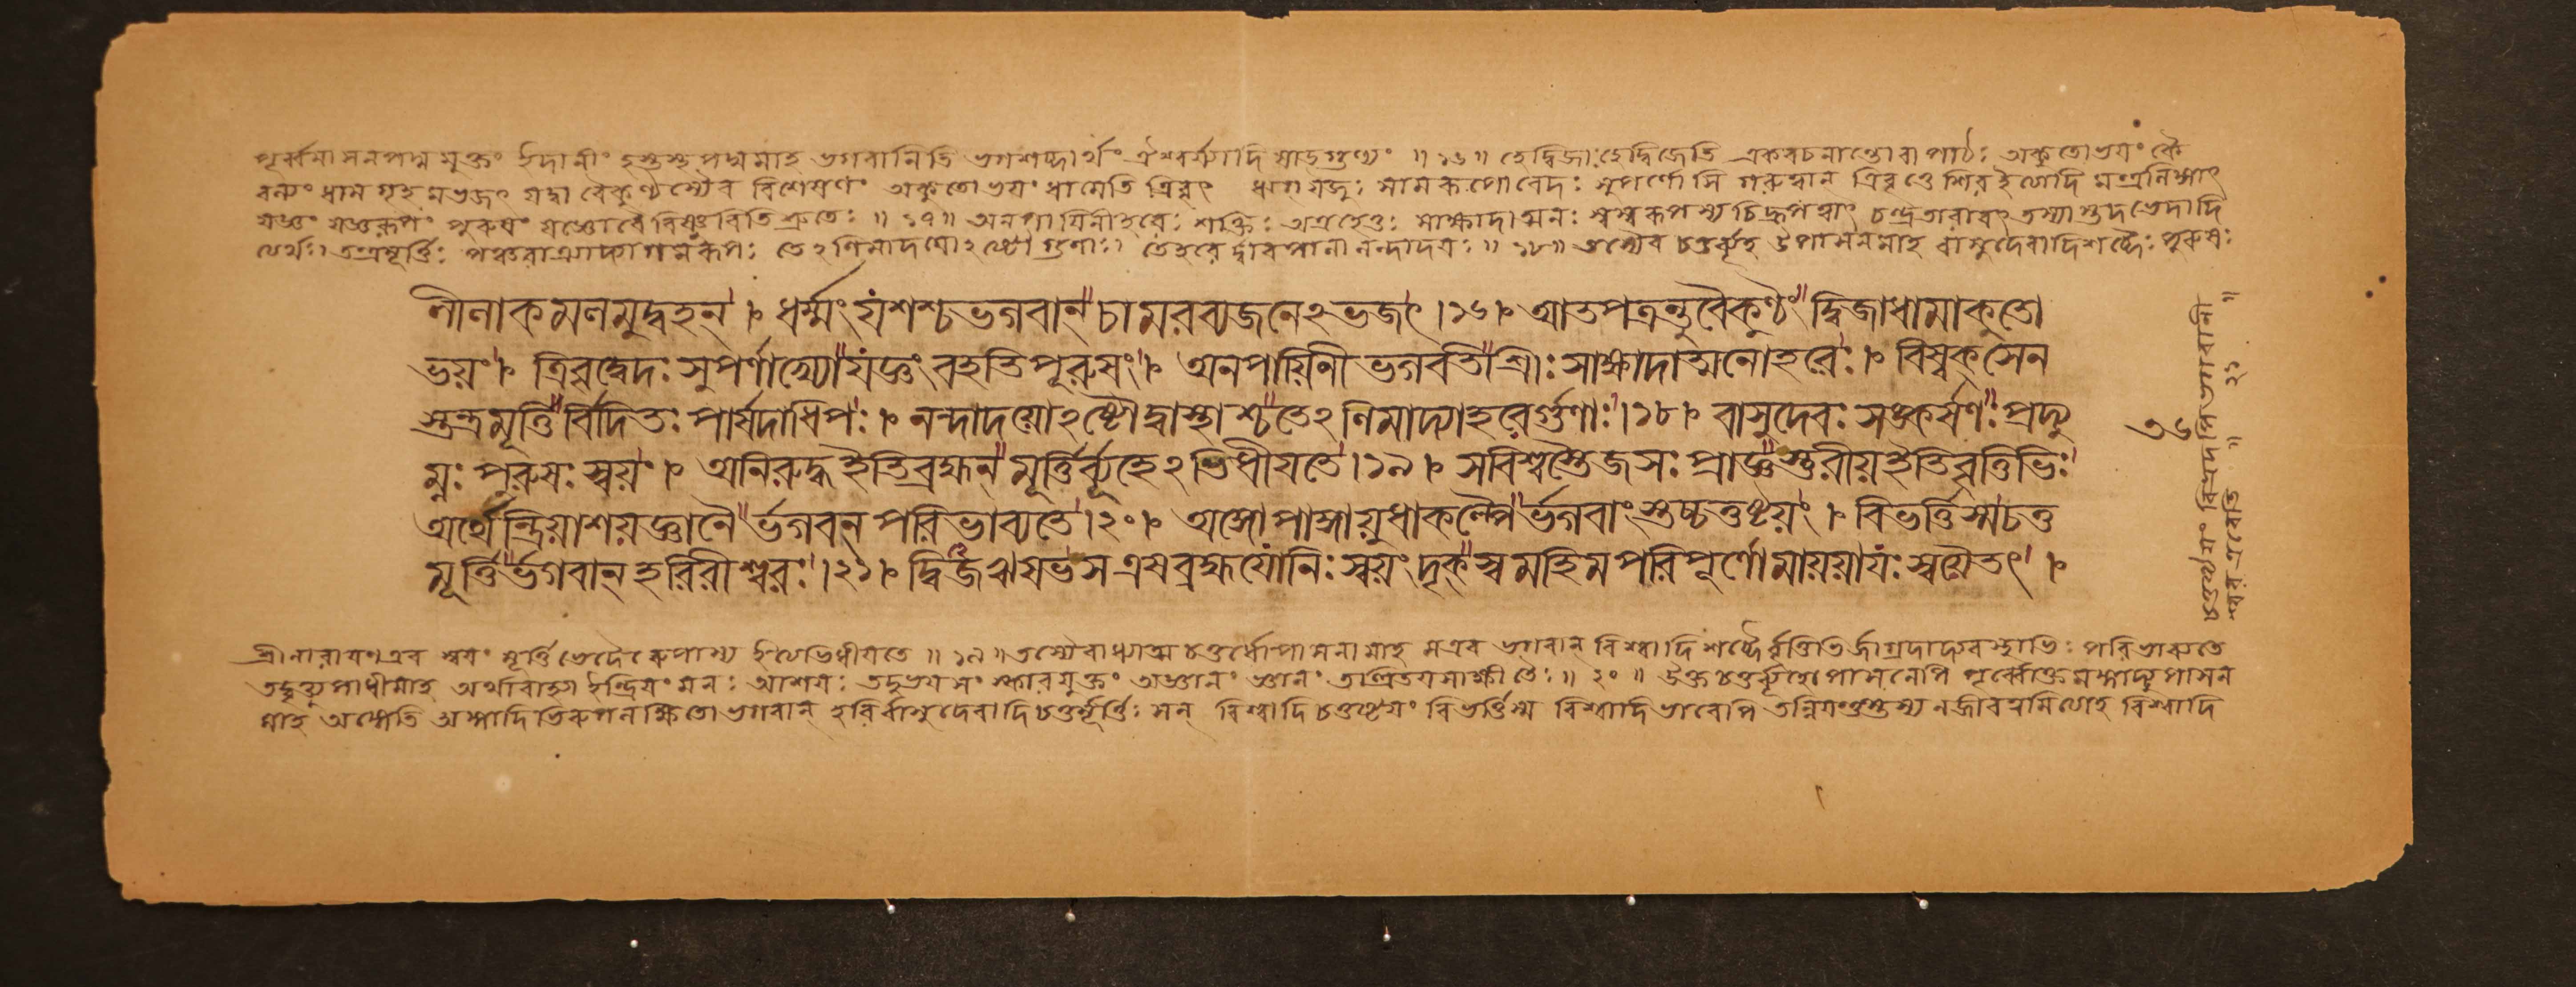 পূর্ব্বমাসনপদ্মমুক্তং ইদানীং হস্তস্থপদ্মমাহ ভগবানিতি ভগশব্দার্থং ঐশ্বর্য্যাদি ষাড্গুণ্যং ॥ ১৬ ॥ হেদ্বিজাঃ হেদ্বিজেতি একবচনান্তোবা পাঠঃ অকুতোভয়ং কৈ
বল্যং ধাম গৃহমভজৎ যদ্বা বৈকুণ্ঠস্যৈব বিশেষণং অকুতোভয়ং ধামেতি ত্রিবৃৎ ঋগ্যজুঃ সামরূপোবেদঃ সুপর্ণোসি গরুত্মান ত্রিবৃত্তে শির ইত্যাদি মন্ত্রলিঙ্গাৎ
যজ্ঞং যজ্ঞরূপং পুরুষং যজ্ঞোবৈ বিষ্ণুরিতি শ্রুতেঃ ॥ ১৭ ॥ অনপায়িনী হরেঃ শক্তিঃ অত্রহেতুঃ সাক্ষাদাত্মনঃ স্বস্বরূপস্য চিদ্রূপত্বাৎ তস্যাস্তদভেদাদি
ত্যর্থঃ। তন্ত্রমূর্ত্তিঃ পঞ্চরাত্রাদ্যাগমরূপঃ তেঽণিমাদয়োঽষ্টৌ গুণাঃ। তেহরের্দ্বারপালা নন্দাদয়ঃ ॥ ১৮ ॥ তস্যৈব চতুর্ব্যূহ উপাসনমাহ বাসুদেবাদিশব্দৈঃ পুরুষঃ
লীলাকমলমুদ্বহন্ । ধর্ম্মং যশশ্চ ভগবান্ চামরব্যজনেঽভজৎ ।১৬। আতপত্রন্তু বৈকুণ্ঠং দ্বিজাধামাকুতো
ভয়ং । ত্রিবৃদ্বেদঃ সুপর্ণাখ্যো যজ্ঞং বহতি পূরুষং । অনপায়িনী ভগবতী শ্রীঃ সাক্ষাদাত্মনোহরেঃ । বিষ্বক্সেন
স্তন্ত্রমূর্ত্তির্বিদিতঃ পার্ষদাধিপঃ । নন্দাদয়োঽষ্টৌ দ্বাস্থাশ্চ তেঽণিমাদ্যা হরের্গুণাঃ ।১৮। বাসুদেবঃ সঙ্কর্ষণঃ প্রদ্যু
ম্নঃ পুরুষঃ স্বয়ং । অনিরুদ্ধ ইতি ব্রহ্মন্ মূর্ত্তির্ব্যূহেঽভিধীয়তে ।১৯। সবিশ্বস্তৈজসঃ প্রাজ্ঞস্তুরীয় ইতি বৃত্তিভিঃ
অর্থেন্দ্রিয়াশয়জ্ঞানৈর্ভগবন্ পরিভাব্যতে ।২০। অঙ্গোপাঙ্গায়ুধাকল্পৈর্ভগবাংস্তচ্চতুষ্টয়ং । বিভর্ত্তি স্ম চতু
মূর্ত্তির্ভগবান্ হরিরীশ্বরঃ ।২১। দ্বিজঋষভ স এষ ব্রহ্মযোনিঃ স্বয়ংদৃক্ স্বমহিমপরিপূর্ণো মায়য়া যঃ স্বয়ৈতৎ ।
শ্রীনারায়ণএব স্বয়ং মূর্ত্তিভেদৈরুপাস্য ইত্যভিধীয়তে ॥ ১৯ ॥ তস্যৈবাধ্যাত্ম চতুর্ধোপাসনামাহ সএব ভগবান্ বিশ্বাদি শব্দৈর্বৃত্তিভির্জাগ্রদাদ্যবস্থাভিঃ পরিভাব্যতে
তদ্বৃত্ত্যুপাধীমাহ অর্থাবাহ্যা ইন্দ্রিয়ং মনঃ আশয়ঃ তদুভয়সংস্কারযুক্তং অজ্ঞানং জ্ঞানং তৈঃ ॥ ২০ ॥ উক্ত চতুর্ব্যূহোপাসনেপি পূর্ব্বোক্তমঙ্গাদ্যুপাসন
মাহ অঙ্গেতি অঙ্গাদিভিরুপলক্ষিতো ভগবান্ হরির্বাসুদেবাদি চতুর্মূর্ত্তিঃ সন্ বিশ্বাদি চতুষ্টয়ং বিভর্ত্তি স্ম বিশ্বাদিভাবেপি তন্নিয়ন্তুস্তস্য নজীবত্বমিত্যাহ বিশ্বাদি
৩৬